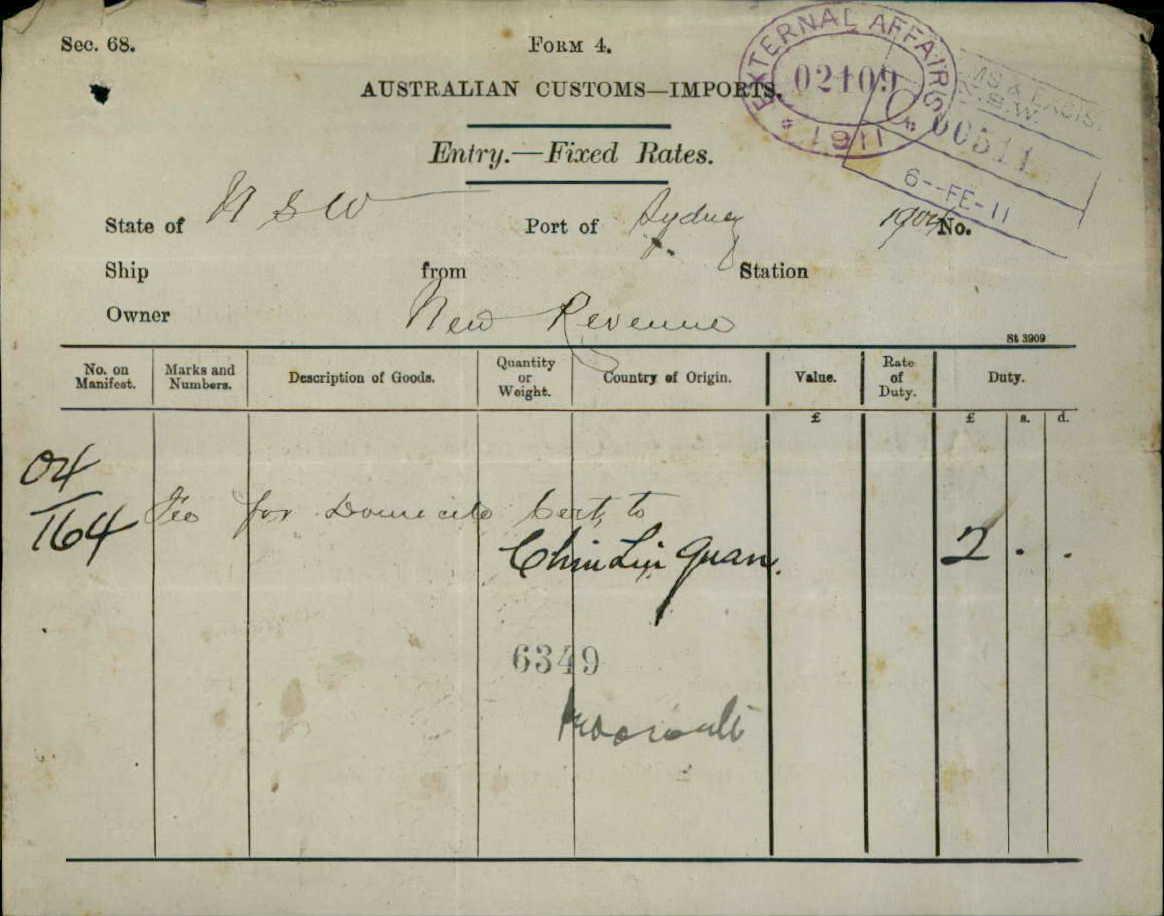 Sec. 68.
FORM 4.
EXTERNAL AFFAIRS
02109
* 1911 *
AUSTRALIAN CUSTOMS—IMPORTS.
MS & EXCIS
N.S.W.
00511
6--FE-11
Entry.—Fixed Rates.
State of N S W Port of Sydney 1904 No.
Ship from Station
Owner New Revenue
St 3909
No. on Manifest. Marks and Numbers. Description of Goods. Quantity or Weight. Country of Origin. Value. Rate of Duty. Duty.
£ £ s. d.
04
164 Fee for Domicile Cert, to
Chin Lin Quan. 2 . .
6349